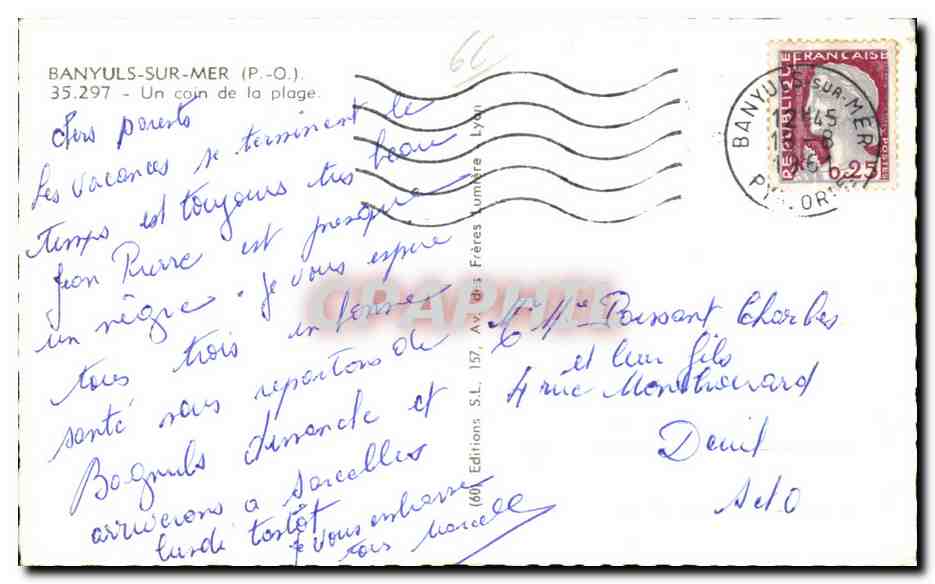 BANYULS-SUR-MER (P.-O.).
35.297 - Un coin de la plage.
6C
chers parents
Les vacances se terminent le
temps est toujours tres beau
Jean Pierre est presque
un nègre. Je vous espere
tous trois en bonne
santé nous repartons de
Bagnuls dimanche et
arriverons a Sarcelles
lundi tantôt
je vous embrasse
tous Marcelle
(60) Editions S.L. 157, Av. des Frères Lumière Lyon
CPAPHIL
REPUBLIQUE FRANÇAISE
0,25
BANYULS-SUR-MER
PYR.-OR
Mr Mme Poissant Charles
et leur fils
4 rue
Deuil
S et O